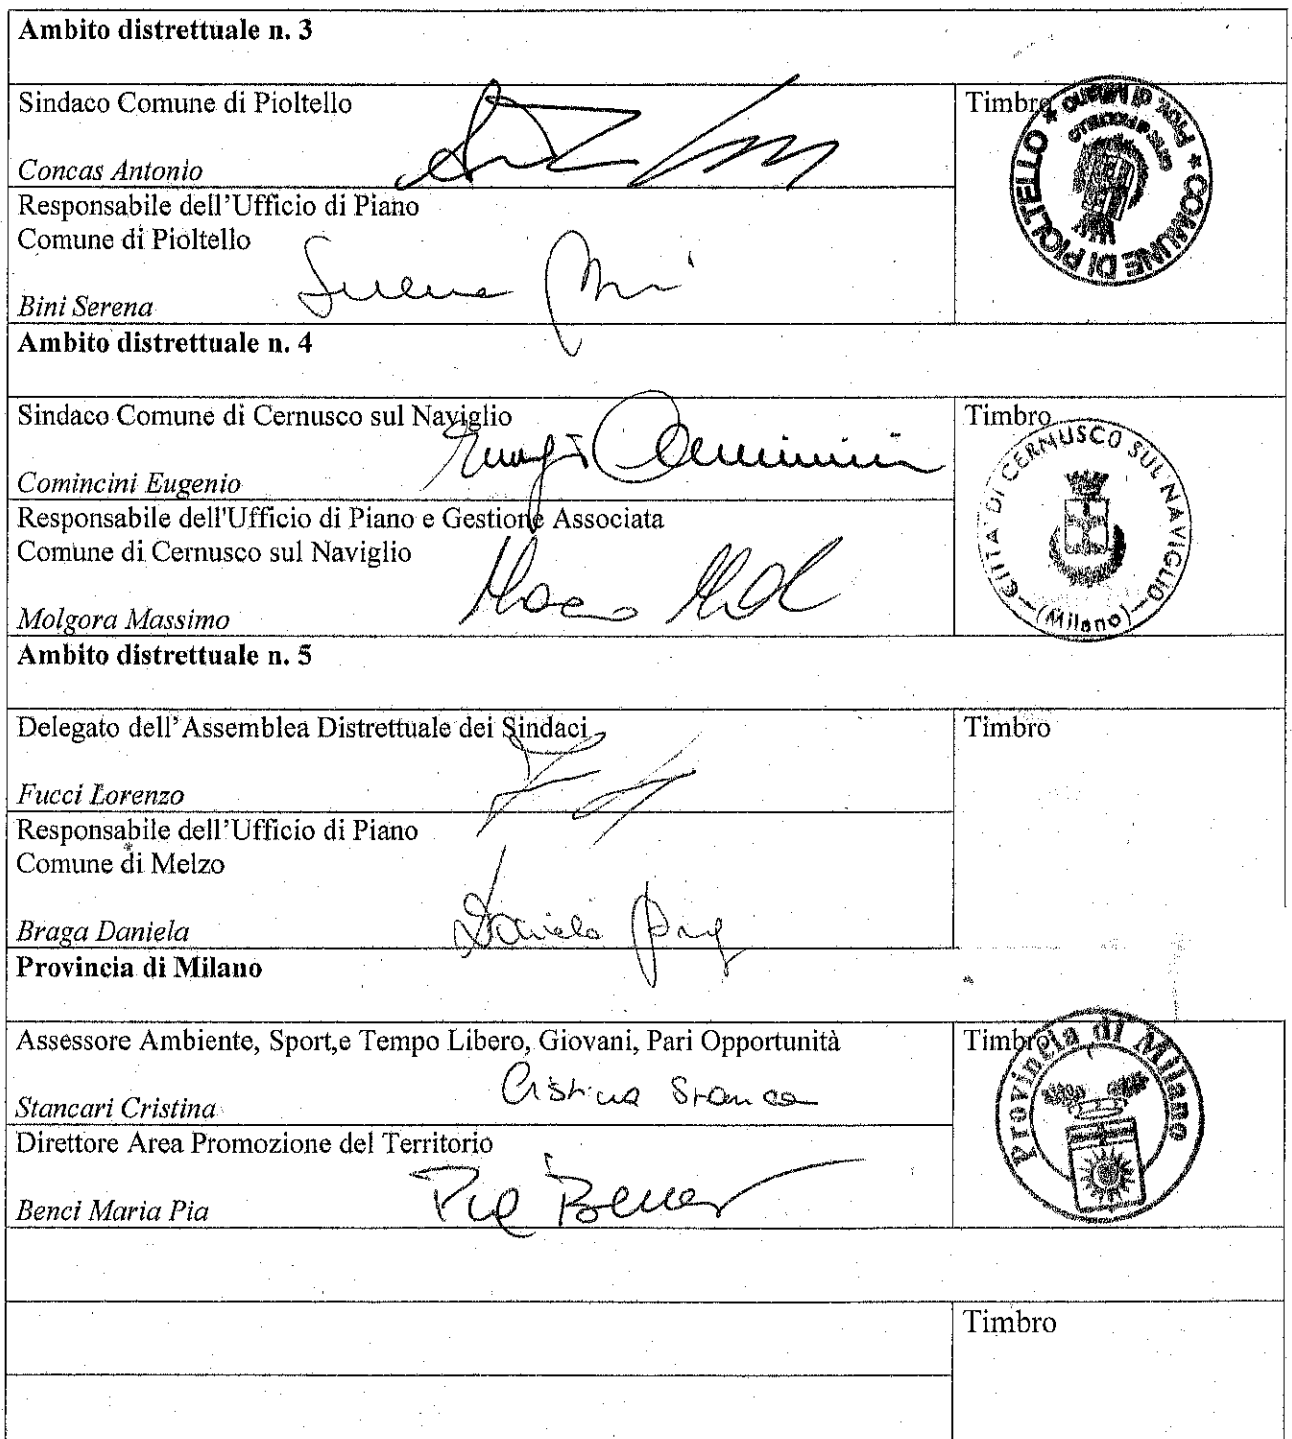 Ambito distrettuale n. 3
Sindaco Comune di Pioltello
Timbro
Concas Antonio
COMUNE DI PIOLTELLO * Prov. di Milano *
Responsabile dell'Ufficio di Piano
Comune di Pioltello
Serena Bini
Bini Serena
Ambito distrettuale n. 4
Sindaco Comune di Cernusco sul Naviglio
Timbro
Comincini
Comincini Eugenio
CITTA' DI CERNUSCO SUL NAVIGLIO
(Milano)
Responsabile dell'Ufficio di Piano e Gestione Associata
Comune di Cernusco sul Naviglio
Molgora Massimo
Ambito distrettuale n. 5
Delegato dell'Assemblea Distrettuale dei Sindaci
Timbro
Fucci Lorenzo
Responsabile dell'Ufficio di Piano
Comune di Melzo
Daniela
Braga Daniela
Provincia di Milano
Assessore Ambiente, Sport,e Tempo Libero, Giovani, Pari Opportunità
Timbro
Provincia di Milano
Cristina
Stancari Cristina
Direttore Area Promozione del Territorio
Benci Maria Pia
Timbro